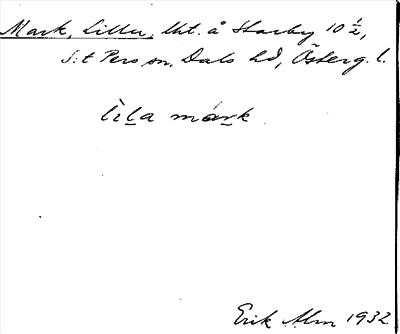 Mark, Lilla, lht. å Starby 10 ½,
S:t Pers sn, Dals hd, Österg. l.
lìl̠a már̠k
Erik Alm 1932